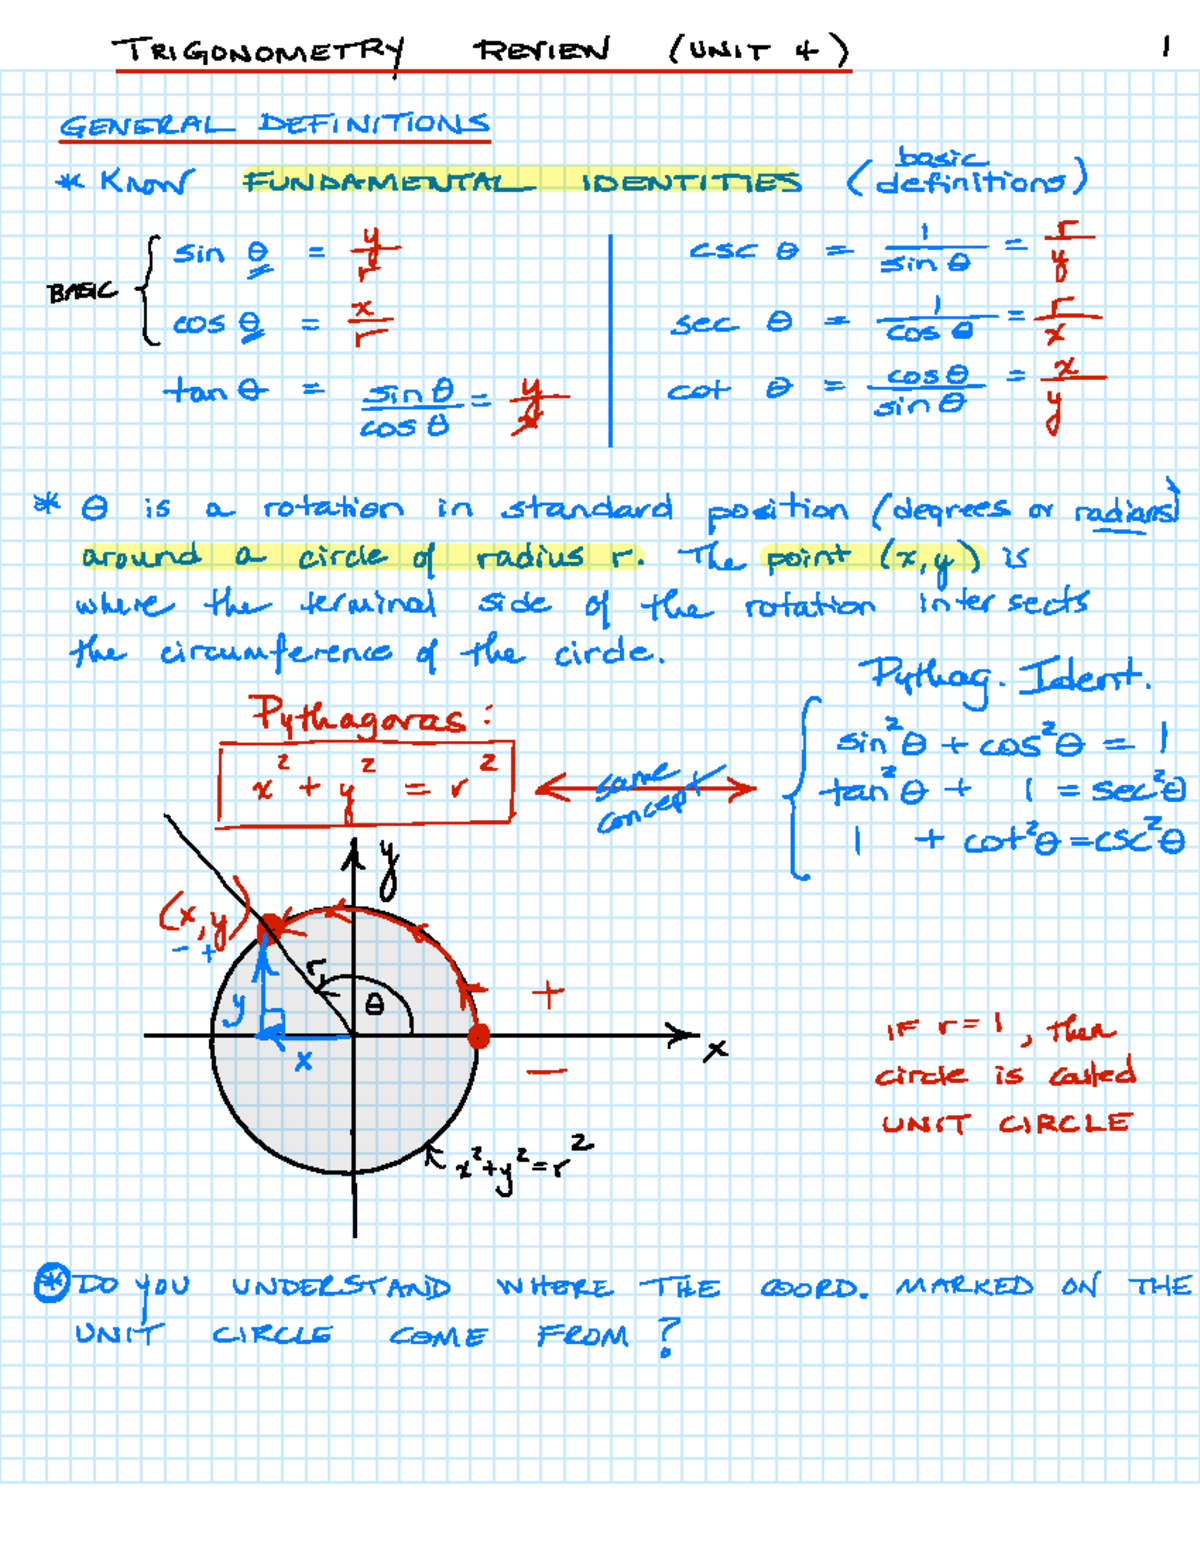 TRIGONOMETRY REVIEW (UNIT 4) 1
GENERAL DEFINITIONS
* KNOW FUNDAMENTAL IDENTITIES (basic definitions)
BASIC
sin θ = y/r
cos θ = x/r
tan θ = sin θ/cos θ = y/x
csc θ = 1/sin θ = r/y
sec θ = 1/cos θ = r/x
cot θ = cos θ/sin θ = x/y
* θ is a rotation in standard position (degrees or radians)
around a circle of radius r. The point (x,y) is
where the terminal side of the rotation intersects
the circumference of the circle.
Pythagoras:
x² + y² = r²
same concept
Pythag. Ident.
sin²θ + cos²θ = 1
tan²θ + 1 = sec²θ
1 + cot²θ = csc²θ
y
(x,y)
- +
r
θ
y
x
+
x
−
x²+y²=r²
IF r=1, then
circle is called
UNIT CIRCLE
* DO YOU UNDERSTAND WHERE THE COORD. MARKED ON THE
UNIT CIRCLE COME FROM?